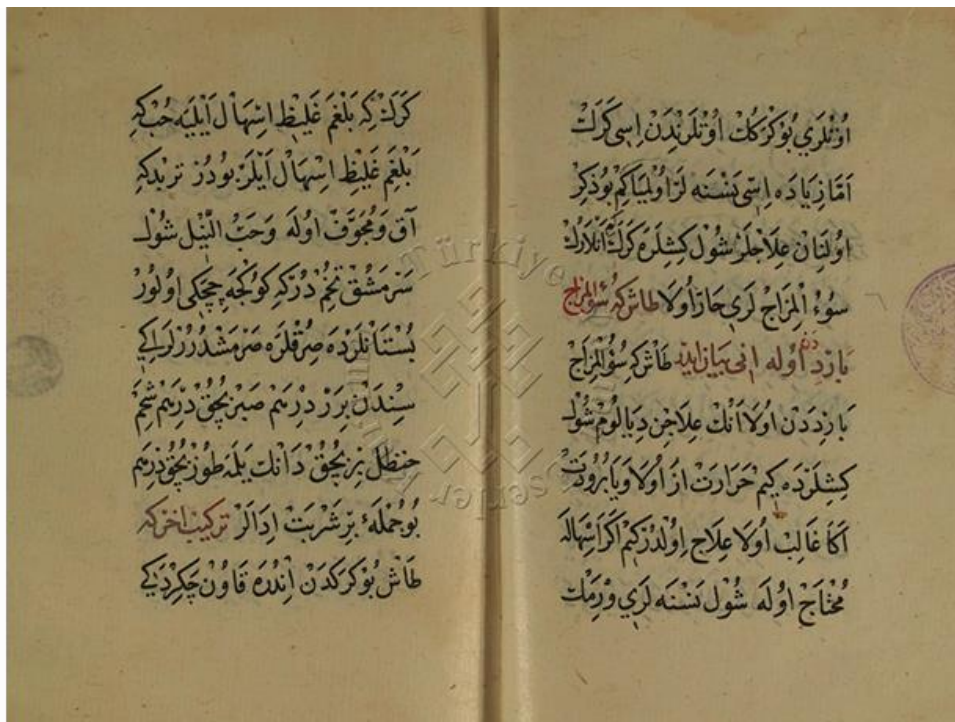 اوُتْلَرِي بُوكَرَكُكْ اوُتْلَرِنْدَنْ اِسّي كَرَكْ
اَمَّا زِيَادَه اِسّى نَسْنَه لَرْ اوُلْمِيَا كِمْ بُو ذِكِرْ
اوُلنَان عِلَاجْلَرْ شُولْ كِشِلَرَه كَرَكْ اَنْلَارُكْ
سوُءُ اْلمِزَاجْ لَرِي حَارّ اوُلَا طاش كه سُوءُ المِزَاج
بَارِدْدَنْ اوُلَه اَنِى بَيَان اِيدَر طَاشْ كِه سُوُ الْمِزَاجْ
بَارِدْدَنْ اوُلَا اَنُكْ عِلَاجِنْ دِيَالُومْ شُولْ
كِشِلَرْدَه كِيمْ حَرَارَتْ اَزْ اوُلَا وَيَا بُرُودَتْ
اَكَا غَالِبْ اوُلَا عِلَاجْ اوُلْدُرْ كِيمْ اَكَرْ اسْهَالَه
مُحْتَاجْ اوُلَه شُولْ نَسْنَه لَرِي وِرْمَكْ
كَرَكْ كِه بَلْغَمِ غَلِيظِ اِسْهَالْ اَيْلَيَه حَبْ كِه
بَلْغَمِ غَلِيظِ اِسْهَالْ اَيْلَرْ بُودُرْ تُرْبُدْ كِه
آقْ وَمُجَوَّفْ اوُلَه وَحَبُّ النّيِلْ شُولْ
سَرْمَشُقْ تُخُمْدُرْ كِه كوُكْجَه چِچَكِى اوُلُورْ
بُسْتَانْلَرْدَه صِرُقْلَرَه صَرْمَشْدُرُرْلَر اِكِي
سِنْدَنْ بِرَرْ دِرْهَمْ صَبِرْ بُچُقْ دِرْهَمْ شَحْمِ
حَنْظَلْ بِرْ بُچُقْ دَانْكْ يِلَه طُوزْ بُچُقْ دِرْهَمْ
بُو جُمْلَهءِ بِرْ شَرْبَتْ اِدَالَرْ تركيب اخر كه
طَاشِ بُوكَرَكْدَنْ اِنْدُرَه قَاوُنْ چَكِرْدَكِي
Türkiye